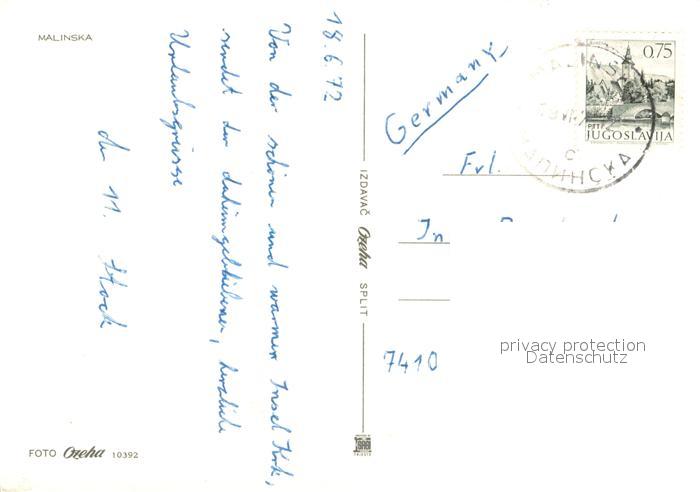 MALINSKA
18.6.72
Von der schönen und warmen Insel Krk,
sendet der daheimgebliebenen, herzliche
Urlaubsgrüsse
der 11. Stock
FOTO Ozeha 10392
IZDAVAČ Ozeha SPLIT
Germany
0,75
PTT
JUGOSLAVIJA
MALINSKA
Frl.
In
7410
privacy protection
Datenschutz